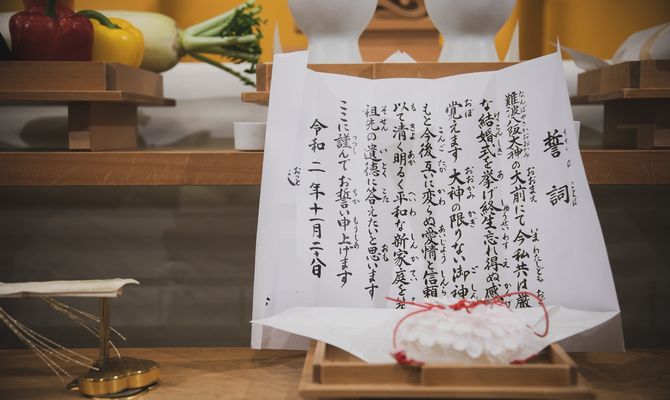 誓詞
難波八阪大神の大前にて今私共は厳
な結婚式を挙げ終生忘れ得ぬ感
覚えます 大神の限りない御神
もと今後互いに変らぬ愛情と信頼
以て清く明るく平和な新家庭を
祖先の遺徳に答えたいと思います
ここに謹んでお誓い申上げます
令和二年十一月二十日